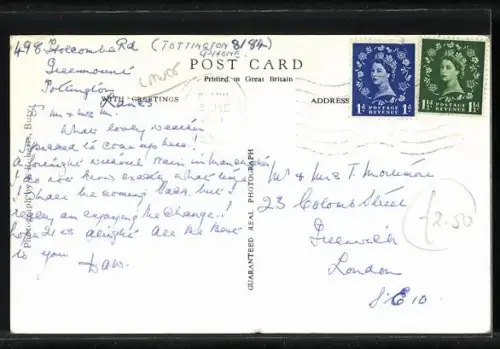 498 Holcombe Rd (TOTTINGTON 8/84)
Greenmount
Tottington
Lancs
LANCS
POST CARD
Printed in Great Britain
WITH GREETINGS
ADDRESS
Mr & Mrs M.
What lovely weather
I had to come up here!
A fortnight without rain in Manchester
I do not know exactly what time
I shall be coming back but I
really am enjoying the change!
hope 21 is alright all the best
to you
D.A.W.
GUARANTEED REAL PHOTOGRAPH
Bury
1D POSTAGE REVENUE 1D
1½D POSTAGE REVENUE 1½D
Mr & Mrs T.
23 Colomb Street
Greenwich
London
S.E 10.
£2.50